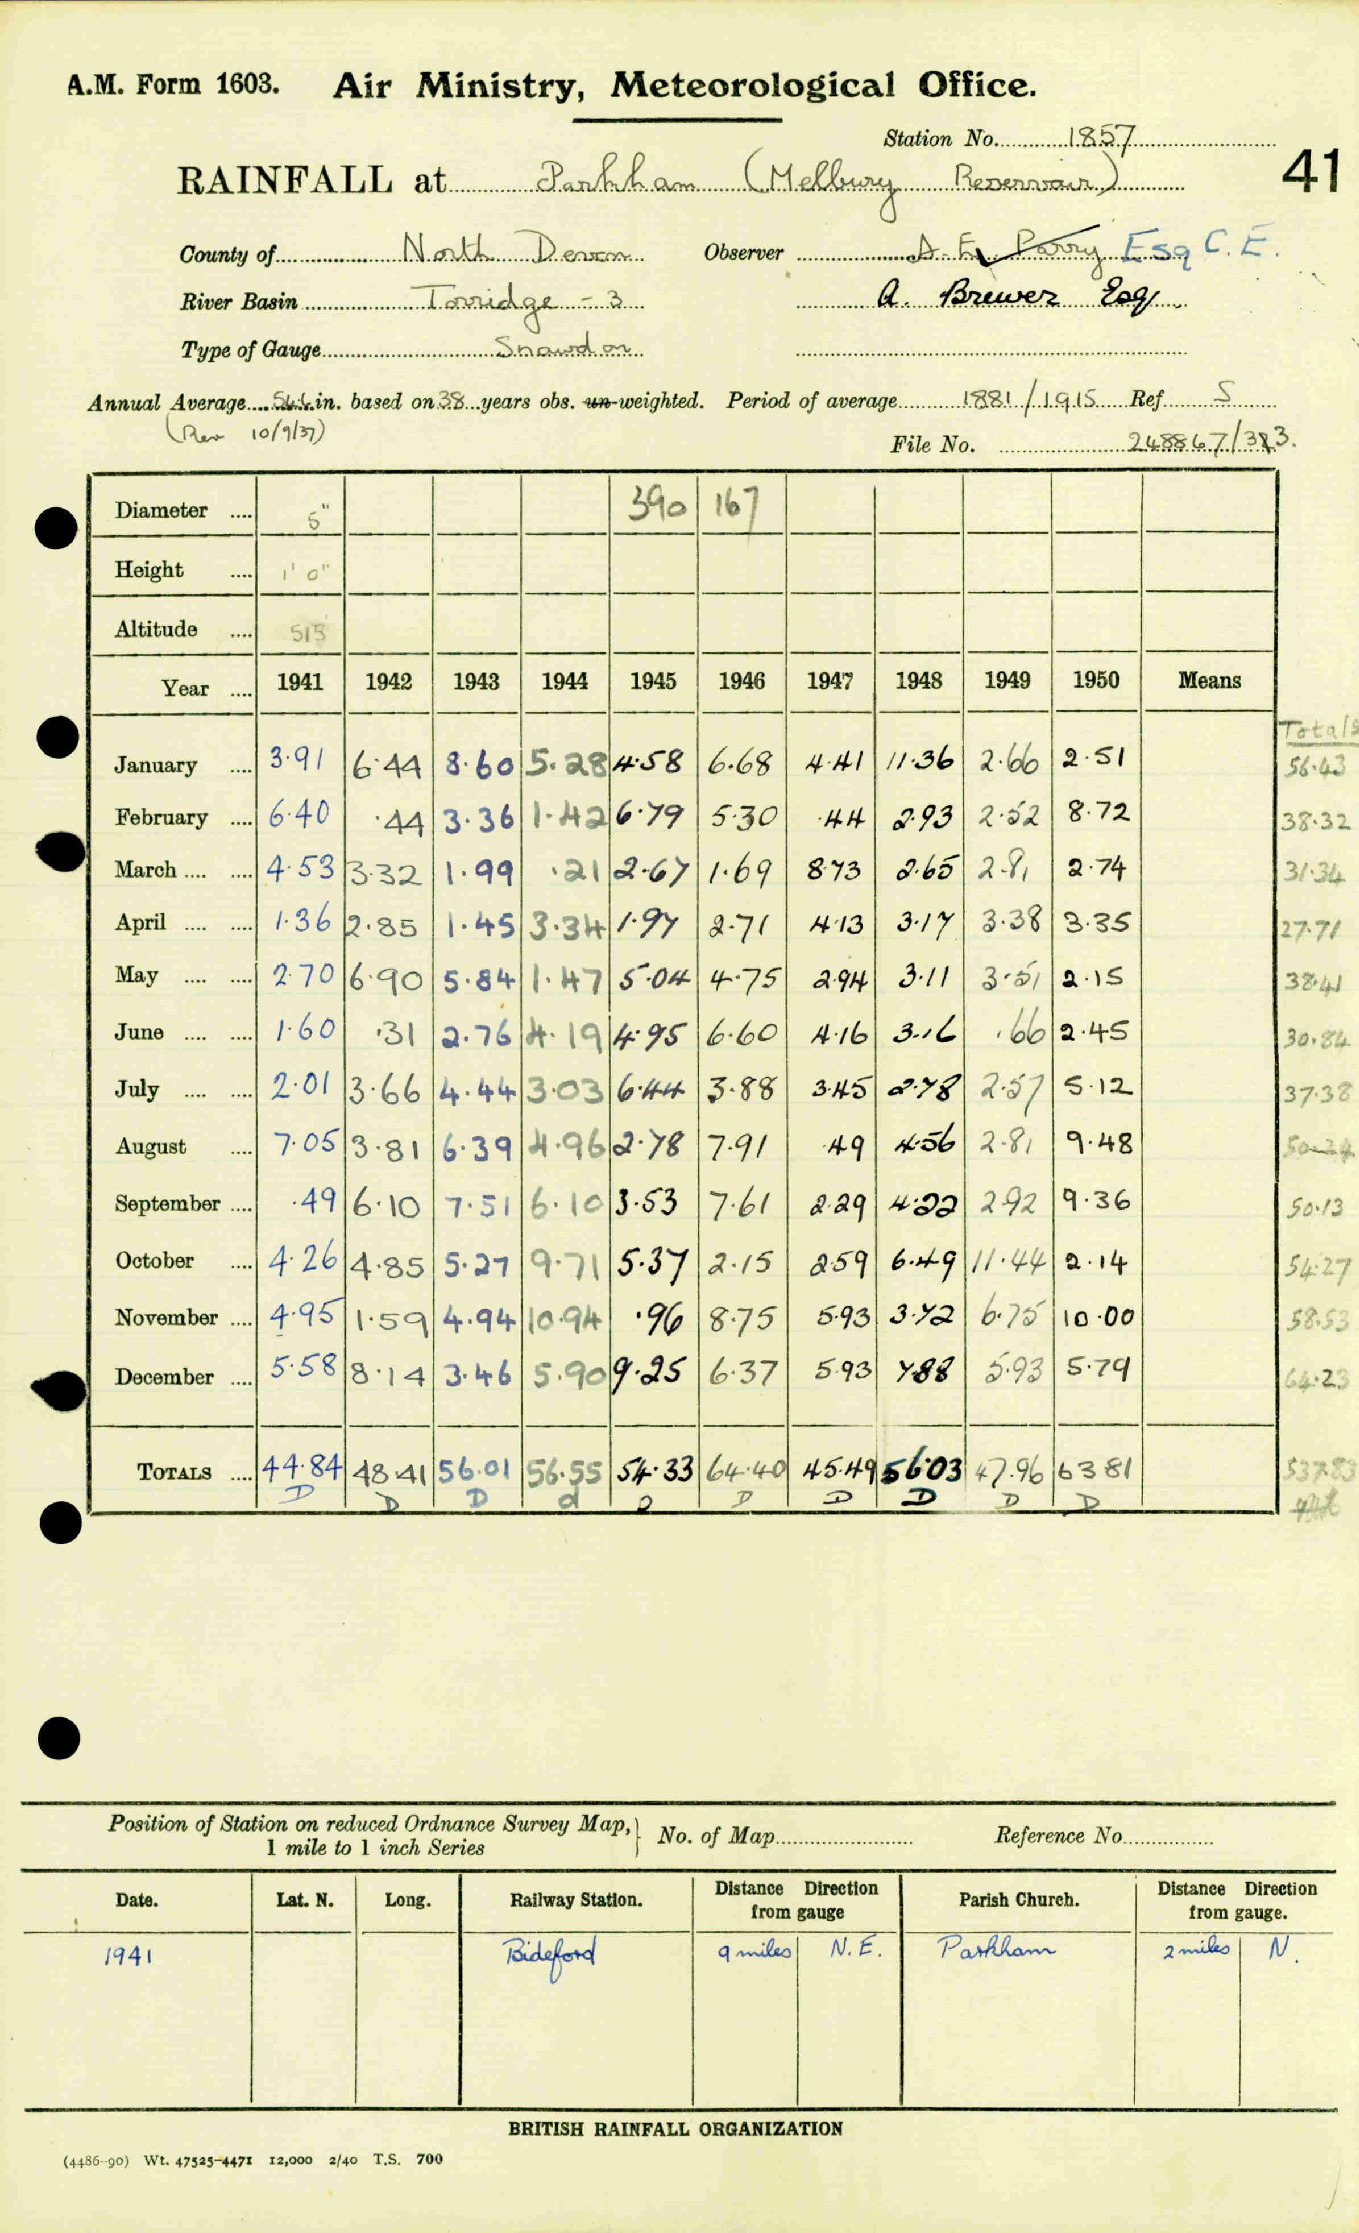 A.M. Form 1603. Air Ministry, Meteorological Office.
Station No. 1857
41
RAINFALL at Parkham (Melbury Reservoir)
County of North Devon Observer A. E. Parry Esq C. E.
River Basin Torridge - 3 A. Brewer Esq
Type of Gauge Snowdon
Annual Average 54.6 in. based on 38 years obs. un-weighted. Period of average 1881/1915 Ref S
(Rev 10/9/37)
File No. 248867/313.
Diameter .... 5" 390 167
Height .... 1' 0"
Altitude .... 515
Year .... 1941 1942 1943 1944 1945 1946 1947 1948 1949 1950 Means
Totals
January .... 3.91 6.44 8.60 5.28 4.58 6.68 4.41 11.36 2.66 2.51 56.43
February .... 6.40 .44 3.36 1.42 6.79 5.30 .44 2.93 2.52 8.72 38.32
March .... .... 4.53 3.32 1.99 .21 2.67 1.69 8.73 2.65 2.81 2.74 31.34
April .... .... 1.36 2.85 1.45 3.34 1.97 2.71 4.13 3.17 3.38 3.35 27.71
May .... .... 2.70 6.90 5.84 1.47 5.04 4.75 2.94 3.11 3.51 2.15 38.41
June .... .... 1.60 .31 2.76 4.19 4.95 6.60 4.16 3.16 .66 2.45 30.84
July .... .... 2.01 3.66 4.44 3.03 6.44 3.88 3.45 2.78 2.57 5.12 37.38
August .... 7.05 3.81 6.39 4.96 2.78 7.91 .49 4.56 2.81 9.48 50.24
September .... .49 6.10 7.51 6.10 3.53 7.61 2.29 4.22 2.92 9.36 50.13
October .... 4.26 4.85 5.27 9.71 5.37 2.15 2.59 6.49 11.44 2.14 54.27
November .... 4.95 1.59 4.94 10.94 .96 8.75 5.93 3.72 6.75 10.00 58.53
December .... 5.58 8.14 3.46 5.90 9.25 6.37 5.93 7.88 5.93 5.79 64.23
TOTALS .... 44.84 48.41 56.01 56.55 54.33 64.40 45.49 56.03 47.96 63 81 537.83
D D D d D D D D D D
Position of Station on reduced Ordnance Survey Map,
1 mile to 1 inch Series No. of Map Reference No
Date. Lat. N. Long. Railway Station. Distance Direction from gauge Parish Church. Distance Direction from gauge.
1941 Bideford 9 miles N. E. Parkham 2 miles N.
BRITISH RAINFALL ORGANIZATION
(4486-90) Wt. 47525-4471 12,000 2/40 T.S. 700